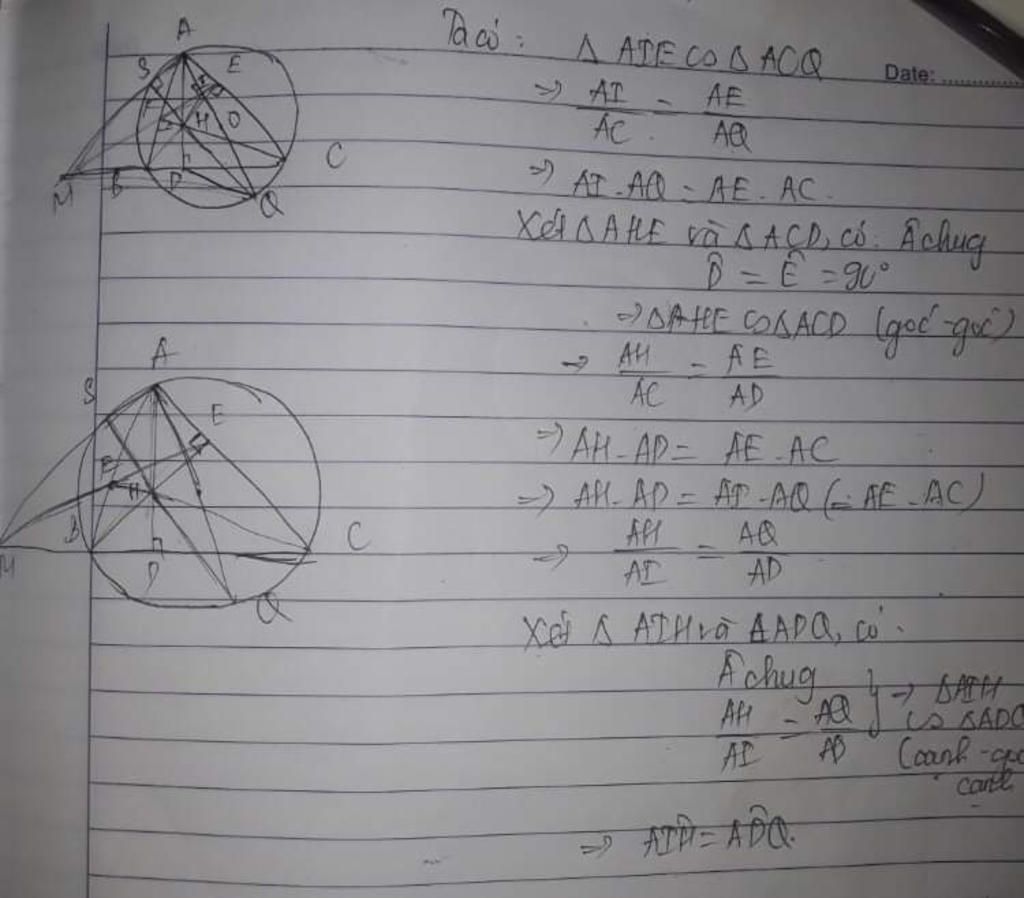 A
S
I
E
H
O
C
M
B
D
Q
A
S
E
F
H
B
C
M
D
Q
Ta có: Δ AIE ∽ Δ ACQ
Date: ............
=> AI/AC = AE/AQ
=> AI . AQ = AE . AC.
Xét Δ AHE và Δ ACD, có: Â chug
D̂ = Ê = 90°
=> Δ AHE ∽ Δ ACD (góc - góc)
=> AH/AC = AE/AD
=> AH . AD = AE . AC
=> AH . AD = AI . AQ (= AE . AC)
=> AH/AI = AQ/AD
Xét Δ AIH và Δ ADQ, có.
Â chug
AH/AI = AQ/AD } => Δ AIH
∽ Δ ADQ
(cạnh - góc
cạnh
=> AÎH = AD̂Q.